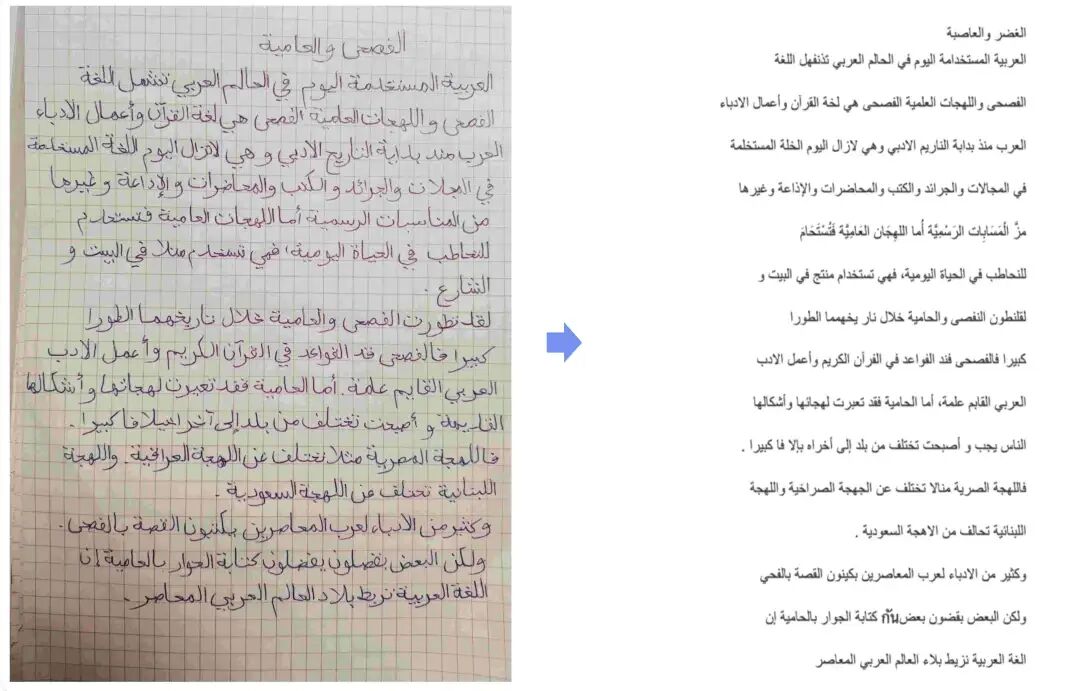 الفصحى والعامية
العربية المستخدمة اليوم في العالم العربي تشمل اللغة
الفصحى واللهجات العلمية الفصحى هي لغة القرآن وأعمال الادباء
العرب منذ بداية التاريخ الادبي وهي لاتزال اليوم اللغة المستخدمة
في المجلات والجرائد والكتب والمحاضرات والإذاعة وغيرها
من المناسبات الرسمية أما اللهجات العامية فتستخدم
للتخاطب في الحياة اليومية، فهي تستخدم مثلا في البيت و
الشارع.
لقد تطورت الفصحى والعامية خلال تاريخهما الطورا
كبيرا فالفصحى قد القواعد في القرآن الكريم وأعمل الادب
العربي القايم علمة. أما العامية فقد تعيرت لهجاتها وأشكالها
القديمة و أصبحت تختلف من بلد إلى آخر كبيرا.
فاللهجة المصرية مثلا تختلف عن اللهجة العراقية. واللهجة
اللبنانية تختلف عن اللهجة السعودية.
وكثير من الادباء لعرب المعاصرين يكتبون القصة بالفصحى.
ولكن البعض يفضلون يفضلون كتابة الحوار بالعامية إن
اللغة العربية تربط بلاد العالم العربي المعاصر.
الغضر والعاصبة
العربية المستخدامة اليوم في الحالم العربي تذتفهل اللغة
الفصحى واللهجات العلمية الفصحى هي لخة القرآن وأعمال الادباء
العرب منذ بدابة الناريم الادبي وهي لازال اليوم الخلة المستخلمة
في المجالات والجرائد والكتب والمحاضرات والإذاعة وغيرها
مزَّ الْمَسَابِات الرَسْمِيَّة أُما اللهِجَان العَامِيَّة فَتُسْتَخَامَ
للنحاطب في الحياة اليومية، فهي تستخدام منتج في البيت و
لقلنطون النفصى والحامية خلال نار يخهمما الطورا
كبيرا فالفصحى فند الفواعد في الفرأن الكريم وأعمل الادب
العربي القابم علمة، أما الحامية فقد تعبرت لهجاتها وأشكالها
الناس يجب و أصبحت تختلف من بلد إلى أخراه بإلا فا كبيرا .
فاللهجة الصرية منالا تختلف عن الجهجة الصراخية واللهجة
اللبنانية تحالف من الاهجة السعودية .
وكثير من الادباء لعرب المعاصرين بكينون القصة بالفحي
ولكن البعض بقضون بعضกัน كتابة الجوار بالحامية إن
الغة العربية نزيط بلاء العالم العربي المعاصر